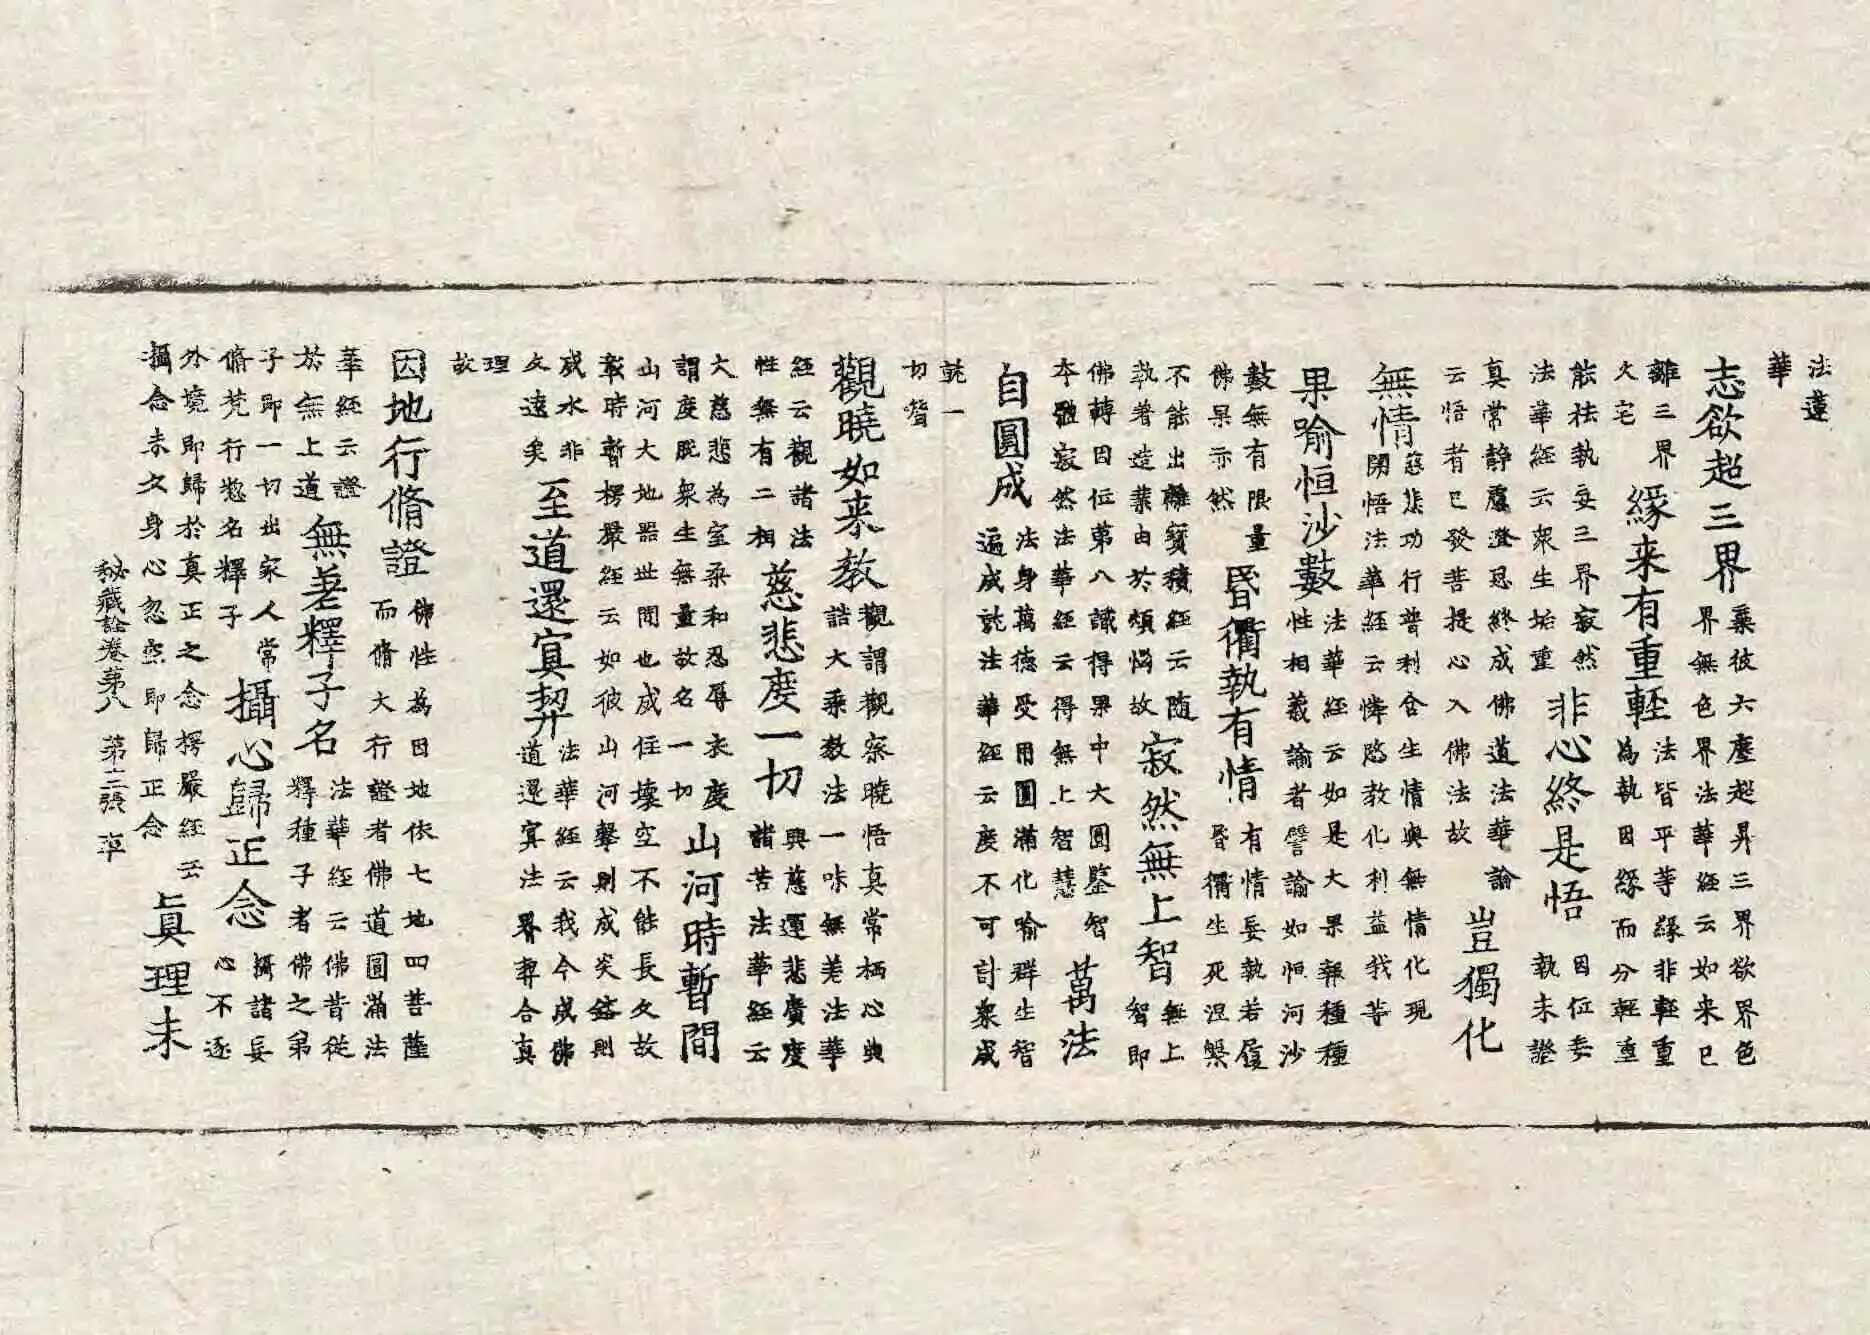 法蓮
華
志欲超三界
乘彼六塵超昇三界欲界色
界無色界法華經云如来已
離三界
火宅
緣来有重輊
法皆平等緣非輕重
為執因緣而分輕重
能祛執妄三界寂然
法華經云衆生垢重
非心終是悟
因位妄
執未證
真常静慮澄忍終成佛道法華論
云悟者已發菩提心入佛法故
豈獨化
無情
慈悲功行普利含生情與無情化現
開悟法華經云憐愍教化利益我等
果喻恒沙數
法華經云如是大果報種種
性相義論者譬諭如恒河沙
數無有限量
佛果亦然
昬衢執有情
有情妄執若履
昬衢生死涅槃
不能出離寶積經云随
執著造業由於煩惱故
寂然無上智
無上
智即
佛轉因位第八識得果中大圓鑒智
本體寂然法華經云得無上智慧
萬法
自圓成
法身萬德受用圓滿化喻群生智
遍成就法華經云度不可計衆成
就一
切智
觀曉如来教
觀謂觀察曉悟真常栖心典
誥大乘教法一味無差法華
經云觀諸法
性無有二相
慈悲度一切
興慈運悲廣度
諸苦法華經云
大慈悲為室柔和忍辱衣度
謂度脱衆生無量故名一切
山河時暫間
山河大地器世間也成住壞空不能長久故
彰時暫楞嚴經云如彼山河擊則成炎鎔則
成水非
久遠矣
至道還冥契
法華經云我今成佛
道還冥法界契合真
理
故
因地行脩證
佛性為因地依七地四菩薩
而脩大行證者佛道圓滿法
華經云證
於無上道
無著釋子名
法華經云佛昔從
釋種子者佛之弟
子即一切出家人常
脩梵行惣名釋子
攝心歸正念
攝諸妄
心不逐
外境即歸於真正之念楞嚴經云
攝念未久身心忽空即歸正念
眞理未
秘藏詮卷第八 第三張